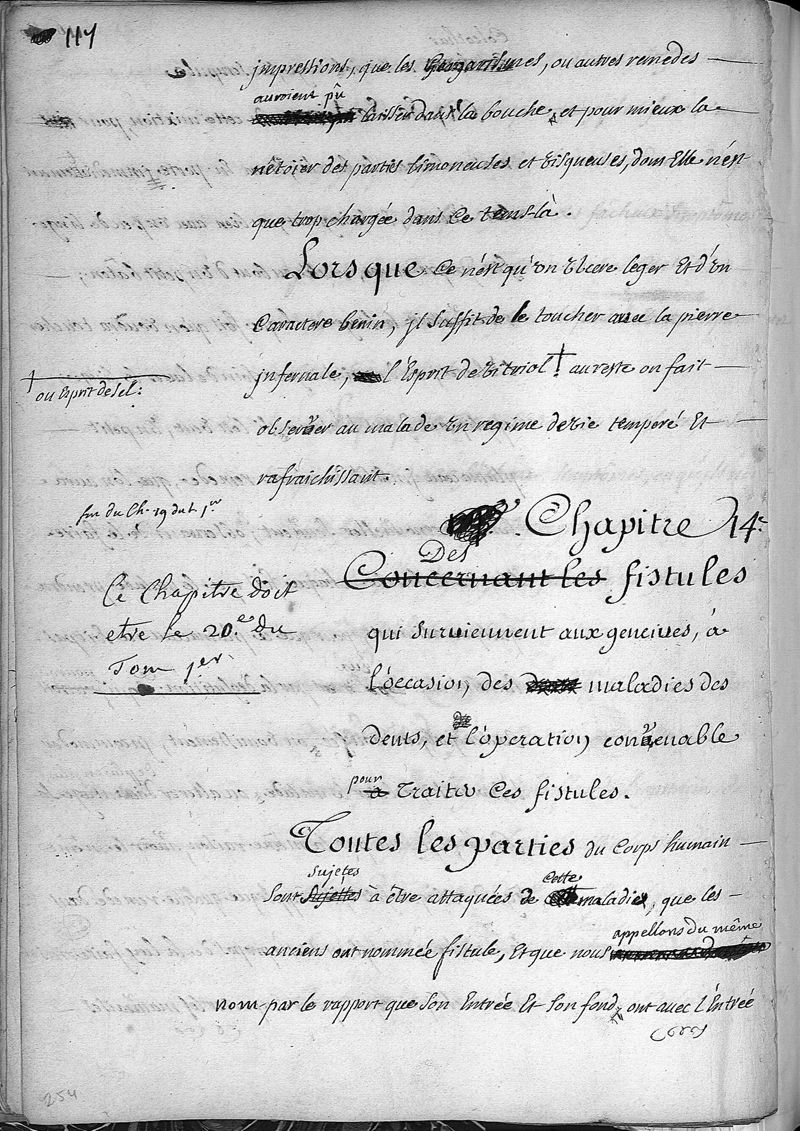 117
impressions, que les Gargarismes, ou autres remedes
auroient pû
laisser dans la bouche, et pour mieux la
nétoier des parties limoneuses et visqueuses, dont Elle n'est
que trop chargée dans ce tems-là.
Lorsque ce n'est qu'un Ulcere leger Et d'un
Caractere benin, jl suffit de le toucher avec la pierre
jnfernale, l'Esprit de vitriol † au reste on fait
† ou Esprit de sel:
observer au malade un regime de vie temperé Et
rafraichissant.
fin du Ch. 19 du t. 1er
Chapitre 14e
Des
Concernant les fistules
Ce Chapitre doit
etre le 20.e du
Tom 1er.
qui surviennent aux gencives, à
l'occasion des maladies des
dents, et de l'operation convenable
pour
à Traiter Ces fistules.
Toutes les parties du Corps humain
sujetes cette
Sont Sujettes à être attaquées de maladie, que les
anciens ont nommée fistule, Et que nous
appellons du même
nom par le rapport que Son Entrée Et Son fond, ont avec l'Entrée
254